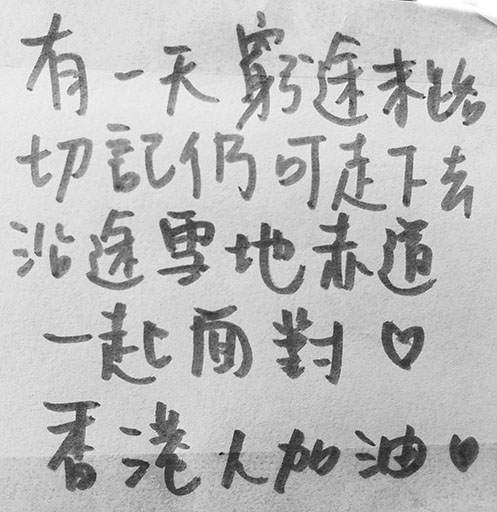 有一天窮途末路
切記仍可走下去
沿途雪地赤道
一起面對♡
香港人加油♥